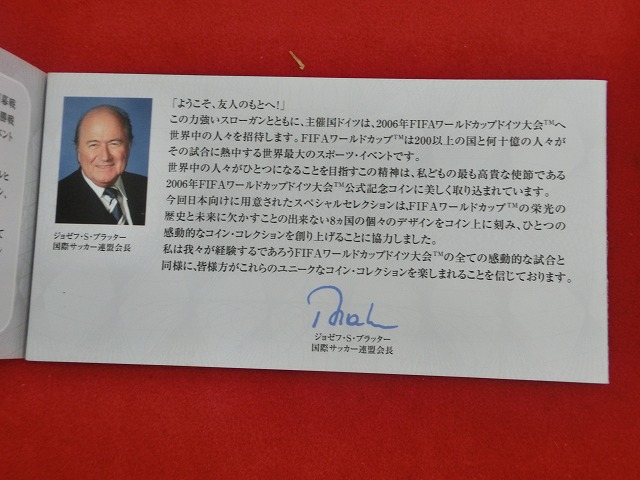 幕戦
勝戦
ベント
ルと
シ、
て
ジョゼフ・S・ブラッター
国際サッカー連盟会長
「ようこそ、友人のもとへ!」
この力強いスローガンとともに、主催国ドイツは、2006年FIFAワールドカップドイツ大会™へ
世界中の人々を招待します。FIFAワールドカップ™は200以上の国と何十億の人々が
その試合に熱中する世界最大のスポーツ・イベントです。
世界中の人々がひとつになることを目指すこの精神は、私どもの最も高貴な使節である
2006年FIFAワールドカップドイツ大会™公式記念コインに美しく取り込まれています。
今回日本向けに用意されたスペシャルセレクションは、FIFAワールドカップ™の栄光の
歴史と未来に欠かすことの出来ない8ヵ国の個々のデザインをコイン上に刻み、ひとつの
感動的なコイン・コレクションを創り上げることに協力しました。
私は我々が経験するであろうFIFAワールドカップドイツ大会™の全ての感動的な試合と
同様に、皆様方がこれらのユニークなコイン・コレクションを楽しまれることを信じております。
ジョゼフ・S・ブラッター
国際サッカー連盟会長